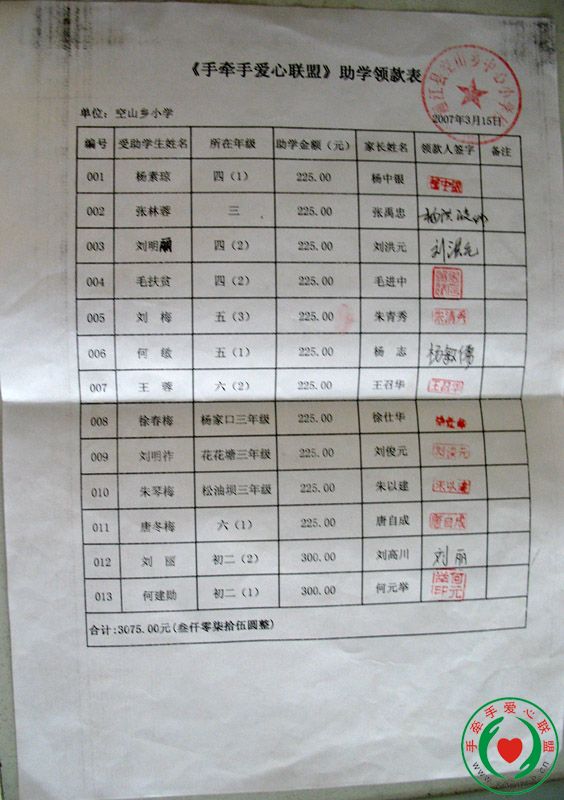 《手牵手爱心联盟》助学领款表
单位：空山乡小学
2007年3月15日
编号 受助学生姓名 所在年级 助学金额（元） 家长姓名 领款人签字 备注
001 杨素琼 四（1） 225.00 杨中银
002 张林蓉 三 225.00 张禹忠
003 刘明丽 四（2） 225.00 刘洪元 刘洪元
004 毛扶贫 四（2） 225.00 毛进中
005 刘 梅 五（3） 225.00 朱青秀 朱清秀
006 何 敏 五（1） 225.00 杨 志
007 王 蓉 六（2） 225.00 王召华 王召华
008 徐春梅 杨家口三年级 225.00 徐仕华
009 刘明祚 花花塘三年级 225.00 刘俊元
010 朱琴梅 松油坝三年级 225.00 朱以建 朱以建
011 唐冬梅 六（1） 225.00 唐自成 唐自成
012 刘 丽 初二（2） 300.00 刘高川 刘丽
013 何建勋 初二（1） 300.00 何元举
合计:3075.00元(叁仟零柒拾伍圆整)
手牵手爱心联盟